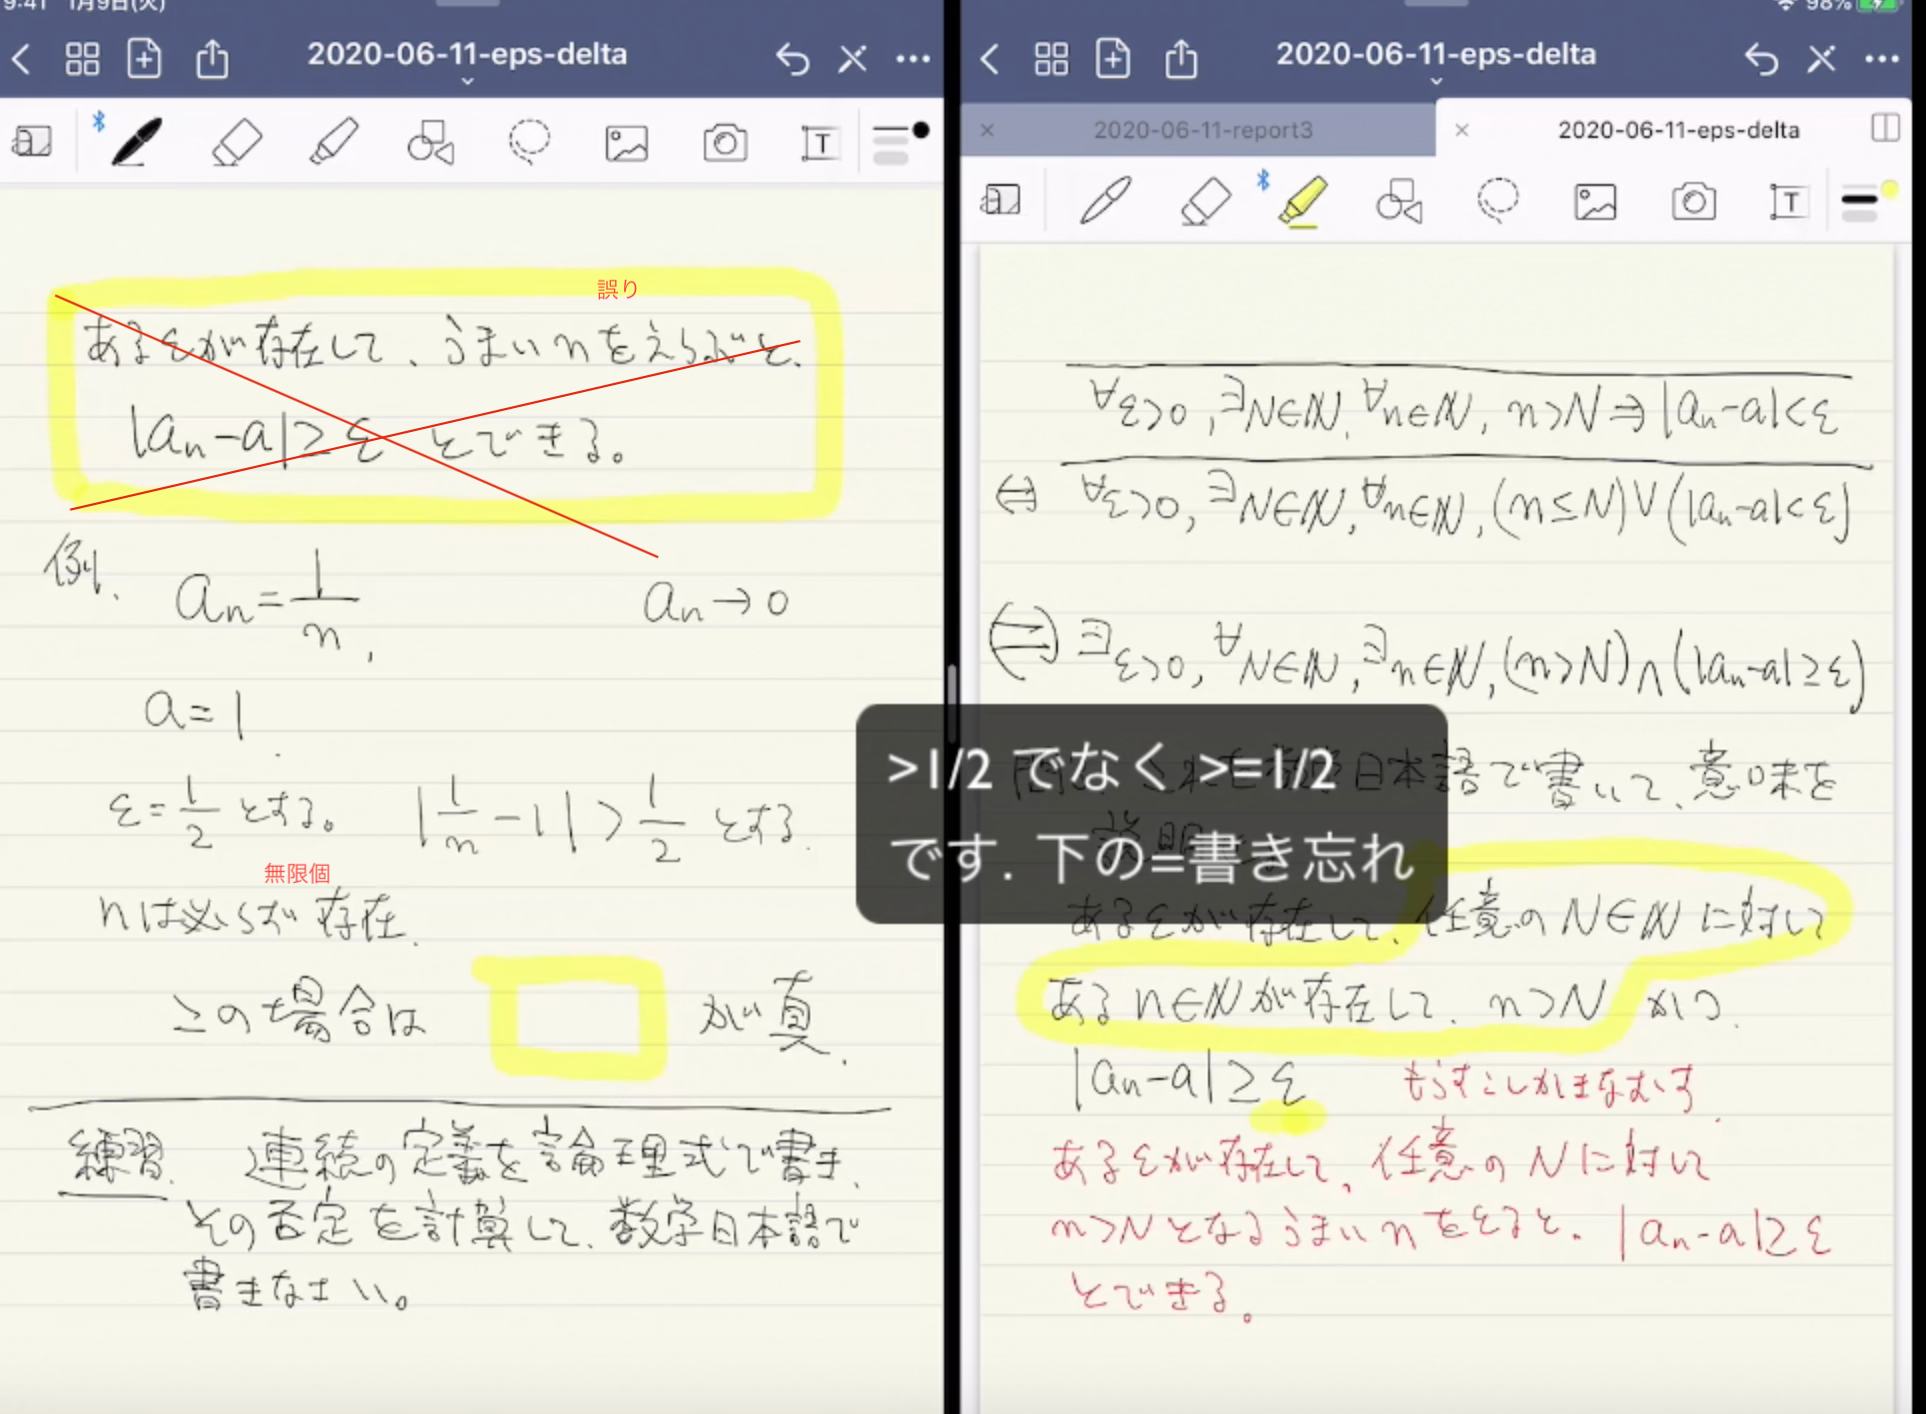 9:41 1月9日(火)
2020-06-11-eps-delta
誤り
あるεが存在して、うまいnをえらぶと、
|an-a|≥ε とできる。
例. an=1/n, an→0
a=1.
ε=1/2 とする。 |1/n-1|>1/2 とする.
無限個
nは必らず存在.
この場合は が真.
練習. 連続の定義を論理式で書き、
その否定を計算して、数学日本語で
書きなさい。
98%
2020-06-11-eps-delta
2020-06-11-report3
2020-06-11-eps-delta
∀ε>0, ∃N∈ℕ, ∀n∈ℕ, n>N⇒|an-a|<ε
⇔ ∀ε>0, ∃N∈ℕ, ∀n∈ℕ, (n≤N)∨(|an-a|<ε)
⇔ ∃ε>0, ∀N∈ℕ, ∃n∈ℕ, (n>N)∧(|an-a|≥ε)
日本語で書いて、意味を
>1/2 でなく >=1/2
です. 下の=書き忘れ
あるεが存在して、任意のN∈ℕに対して
あるn∈ℕが存在して、n>N かつ、
|an-a|≥ε もうすこしかみなおす.
あるεが存在して、任意のNに対して
n>Nとなるうまいnをとると、|an-a|≥ε
とできる。